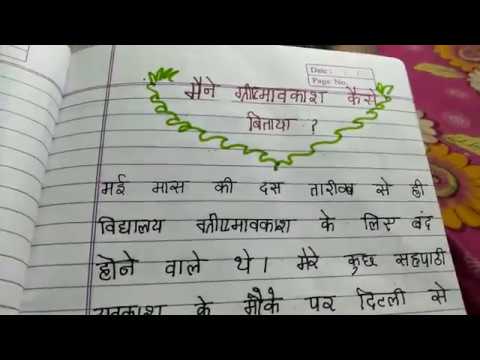 Date :
Page No.
मैने ग्रीष्मावकाश कैसे
बिताया ?
मई मास की दस तारीख से ही
विद्यालय ग्रीष्मावकाश के लिए बंद
होने वाले थे। मेरे कुछ सहपाठी
अवकाश के मौके पर दिल्ली से